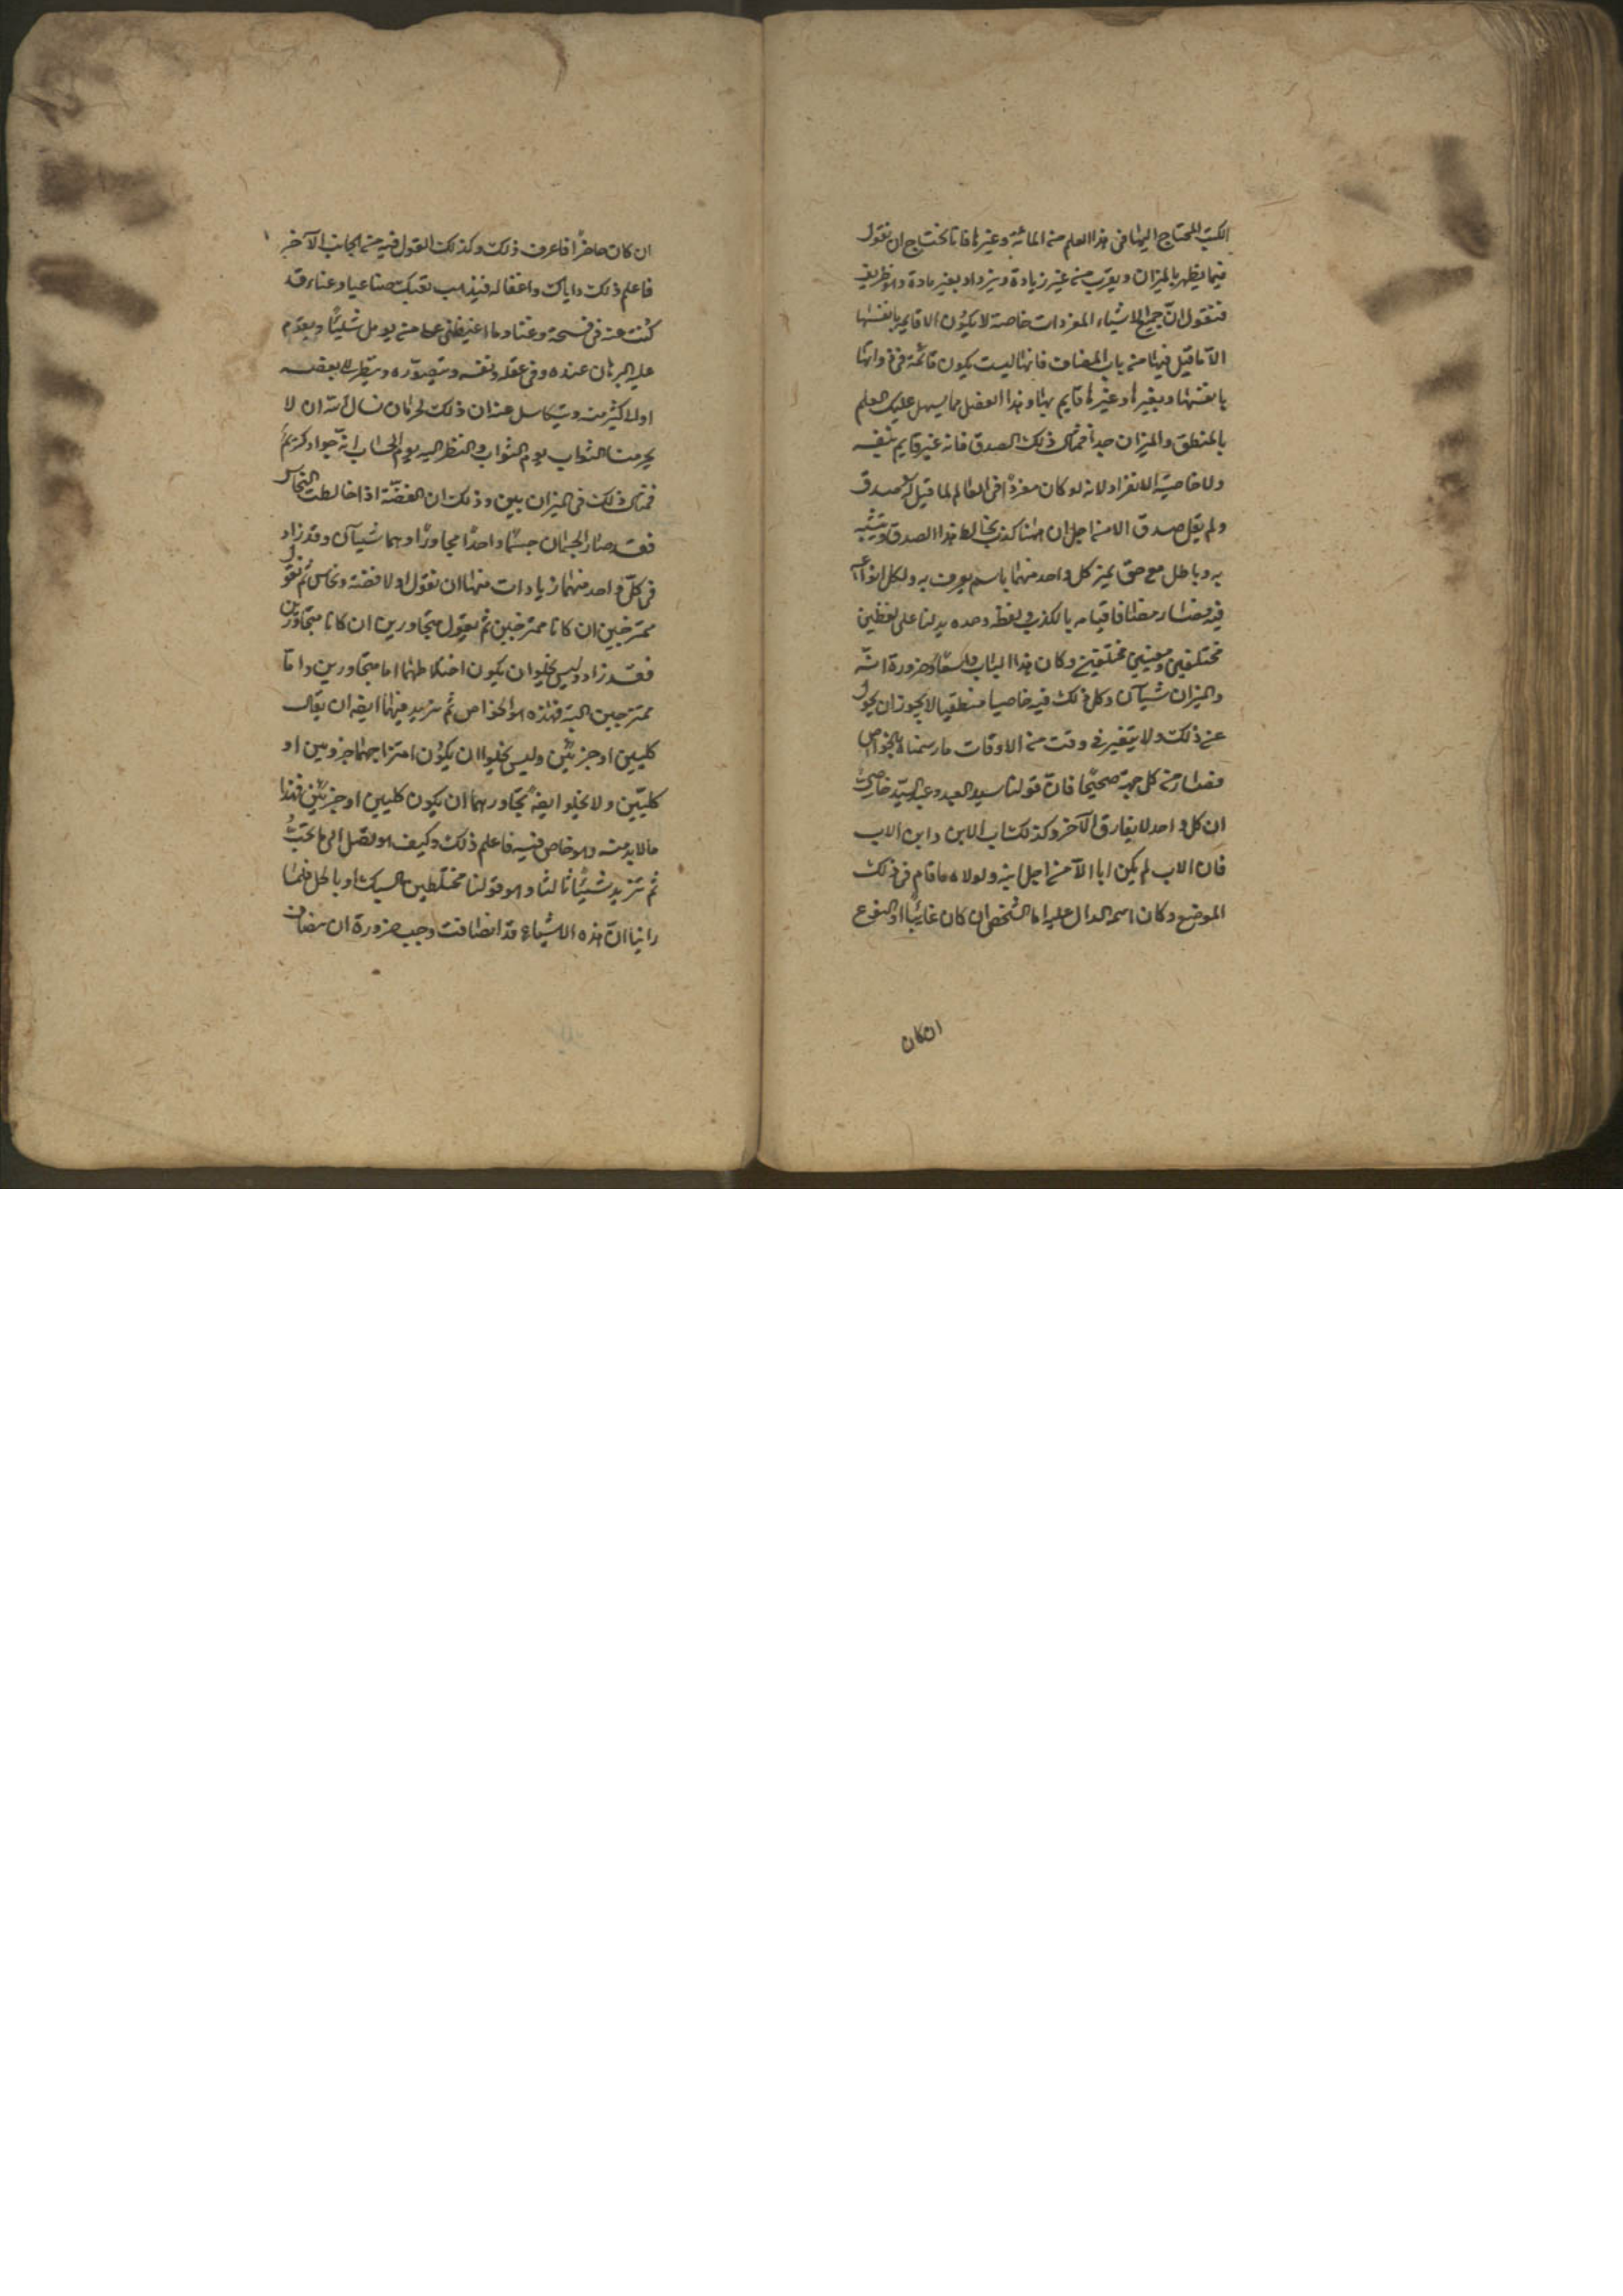 الكتب المحتاج اليها فى هذا العلم من المائة وغيرها فانا نحتاج ان نقول
فيما يظهر بالميزان ويقرب من غير زيادة ويزداد بغير مادة وهو ظريف
فنقول انّ جميع الاشياء المفردات خاصة لا يكون الا قايمة بانفسها
الا ما قيل فيها من باب المضاف فانها ليست يكون قائمة فى ذواتها
بانفسها وبغيرها وغيرها قايم بها وهذا الفصل مما يسهل عليك العلم
بالمنطق والميزان جداً فمثال ذلك الصدق فانه غير قايم بنفسه
ولا خاصية الانفراد لانه لو كان مفرداً فى العالم لما قيل له صدق
ولم يقل صدق الا من اجل ان هنا كذب يخالط هذا الصدق ويشبه
به وباطل مع حق يميز كل واحد منهما باسم يعرف به ولكل انواع
فيه فصار مضافا قيامه بالكذب ولفظه وحده يدلنا على لفظين
مختلفين ومعنيين مختلفين وكان هذا الباب واسعاً وضرورة انه
والميزان شيآن وكل ذلك فيه خاصيا منطقيا لا يجوز ان يحول
عن ذلك ولا يتغير فى وقت من الاوقات ما رسمناه بالخواص
فصار من كل جهة صحيحا فانّ قولنا سيد العبد وعبد السيّد خاصيّة
ان كل واحد لا يفارق الآخر وكذلك اب الابن وابن الاب
فان الاب لم يكن ابا الا من اجل ابنه ولولاه ما قام فى ذلك
الموضع وكان اسمه الدال عليه اما الشخص ان كان غايبا او النوع
ان كان
ان كان حاضراً فاعرف ذلك وكذلك القول فيه من الجانب الآخر
فاعلم ذلك واياك واغفاله فيذهب تعبك ضايعا وعناء قد
كنت عنه فى فسحة وغنا وما اغيظنى على من يومل شيئا ويقدم
عليه البرهان عنده وفى عقله ونفسه ويتصوّره وينظر لا بعضه
او لاكثر منه ويتكاسل عنه ان ذلك لحرمان نسال الله ان لا
يحرمنا الثواب يوم الثواب والنظر اليه يوم الحساب انه جواد كريم
فمثال ذلك فى الميزان بين وذلك ان الفضّة اذا خالطت النحاس
فقد صار الجسمان جسما واحدا مجاورا وهما شيآن وقد زاد
فى كلّ واحد منهما زيادات منها ان نقول اولا فضة ونحاس ثم نقول
ممتزجين ان كانا ممتزجين ثم نقول متجاورين ان كانا متجاورين
فقد زاد وليس يخلوا ان يكون اختلاطهما اما متجاورين واما
ممتزجين البتة فهذه هو الخواص ثم نزيد فيهما ايضا ان يقال
كليين او جزئيّن وليس يخلوا ان يكون امتزاجهما جزويين او
كليّين ولا يخلو ايضا تجاورهما ان يكون كليين او جزئيّن فهذا
ما لا بد منه وهو خاص فيه فاعلم ذلك وكيف هو تصل الى ما تحبّ
ثم تزيد شيئا ثالثا وهو قولنا مختلطين بالسبك او بالحل فلما
راينا انّ هذه الاشياء قد انضافت وجب ضرورة ان يضاف